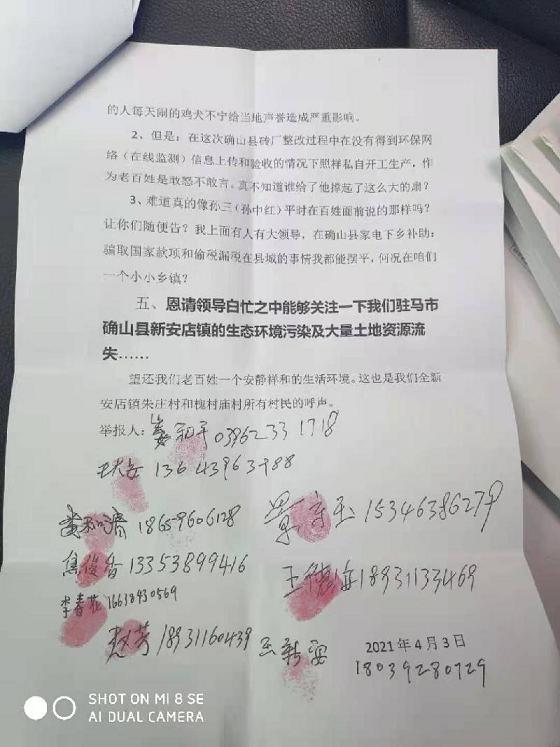 的人每天闹的鸡犬不宁给当地声誉造成严重影响。
2、但是：在这次确山县砖厂整改过程中在没有得到环保网
络（在线监测）信息上传和验收的情况下照样私自开工生产，作
为老百姓是敢怒不敢言。真不知道谁给了他撑起了这么大的扇？
3、难道真的像孙三（孙中红）平时在百姓面前说的那样吗？
让你们随便告？我上面有人有大领导，在确山县家电下乡补助：
骗取国家款项和偷税漏税在县城的事情我都能摆平，何况在咱们
一个小小乡镇？
五、恩请领导白忙之中能够关注一下我们驻马市
确山县新安店镇的生态环境污染及大量土地资源流
失……
望还我们老百姓一个安静祥和的生活环境。这也是我们全新
安店镇朱庄村和槐树庙村所有村民的呼声。
举报人：
03962331718
13643963988
18659606128
15346386279
焦俊香 13353899416
18931133469
李春花 16618930569
赵芳 18931160439
2021年4月3日
18039280729
SHOT ON MI 8 SE
AI DUAL CAMERA